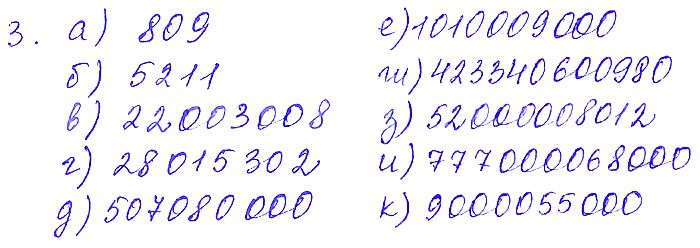 3. а) 809
б) 5211
в) 22003008
г) 28015302
д) 507080000
е) 1010009000
ж) 423340600980
з) 52000008012
и) 777000068000
к) 9000055000